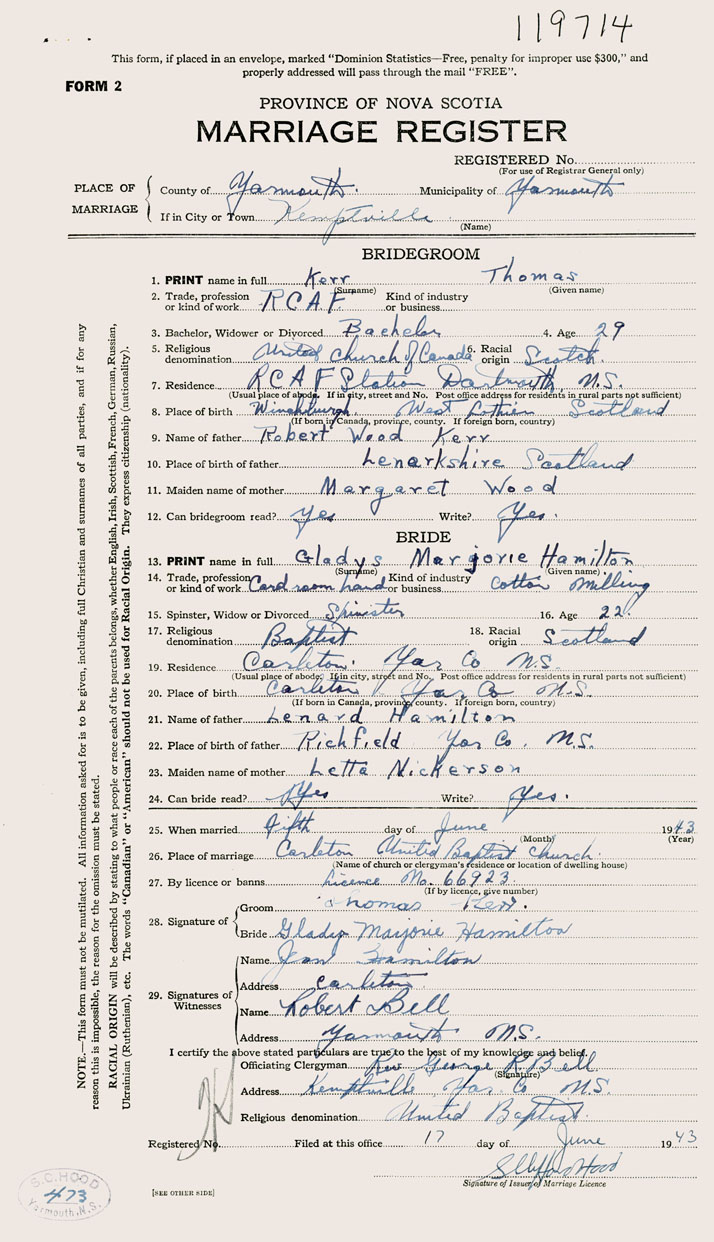 119714
This form, if placed in an envelope, marked "Dominion Statistics—Free, penalty for improper use $300," and
properly addressed will pass through the mail "FREE".
FORM 2
PROVINCE OF NOVA SCOTIA
MARRIAGE REGISTER
REGISTERED No.
(For use of Registrar General only)
PLACE OF MARRIAGE
County of Yarmouth. Municipality of Yarmouth
If in City or Town Kemptville
(Name)
BRIDEGROOM
1. PRINT name in full Kerr Thomas
(Surname) (Given name)
2. Trade, profession or kind of work RCAF Kind of industry or business
3. Bachelor, Widower or Divorced Bachelor 4. Age 29
5. Religious denomination United Church of Canada 6. Racial origin Scotch.
7. Residence RCAF Station Dartmouth, N.S.
(Usual place of abode. If in city, street and No. Post office address for residents in rural parts not sufficient)
8. Place of birth Winchburgh West Lothian Scotland
(If born in Canada, province, county. If foreign born, country)
9. Name of father Robert Wood Kerr
10. Place of birth of father Lenarkshire Scotland
11. Maiden name of mother Margaret Wood
12. Can bridegroom read? Yes Write? Yes.
BRIDE
13. PRINT name in full Gladys Marjorie Hamilton
(Surname) (Given name)
14. Trade, profession or kind of work Card room hand Kind of industry or business Cotton Milling
15. Spinster, Widow or Divorced Spinister 16. Age 22.
17. Religious denomination Baptist 18. Racial origin Scotland
19. Residence Carleton. Yar Co N.S.
(Usual place of abode. If in city, street and No. Post office address for residents in rural parts not sufficient)
20. Place of birth Carleton Yar Co N.S.
(If born in Canada, province, county. If foreign born, country)
21. Name of father Lenard Hamilton
22. Place of birth of father Richfield Yar Co. N.S.
23. Maiden name of mother Letta Nickerson
24. Can bride read? Yes Write? Yes.
25. When married fifth day of June 1943
(Month) (Year)
26. Place of marriage Carleton United Baptist Church.
(Name of church or clergyman's residence or location of dwelling house)
27. By licence or banns Licence No. 66923
(If by licence, give number)
28. Signature of
Groom Thomas Kerr.
Bride Gladys Marjorie Hamilton
29. Signatures of Witnesses
Name Jean Hamilton
Address Carleton
Name Robert Bell
Address Yarmouth N.S.
I certify the above stated particulars are true to the best of my knowledge and belief.
Officiating Clergyman Rev George R. Bell
(Signature)
Address Kemptville Yar. Co N.S.
Religious denomination United Baptist.
Registered No. Filed at this office 17 day of June 1943
S Clifford Hood
Signature of Issuer of Marriage Licence
[SEE OTHER SIDE]
S.C. HOOD
473
Yarmouth, N.S.
NOTE.—This form must not be mutilated. All information asked for is to be given, including full Christian and surnames of all parties, and if for any
reason this is impossible, the reason for the omission must be stated.
RACIAL ORIGIN will be described by stating to what people or race each of the parents belongs, whether English, Irish, Scottish, French, German, Russian,
Ukrainian (Ruthenian), etc. The words "Canadian" or "American" should not be used for Racial Origin. They express citizenship (nationality).